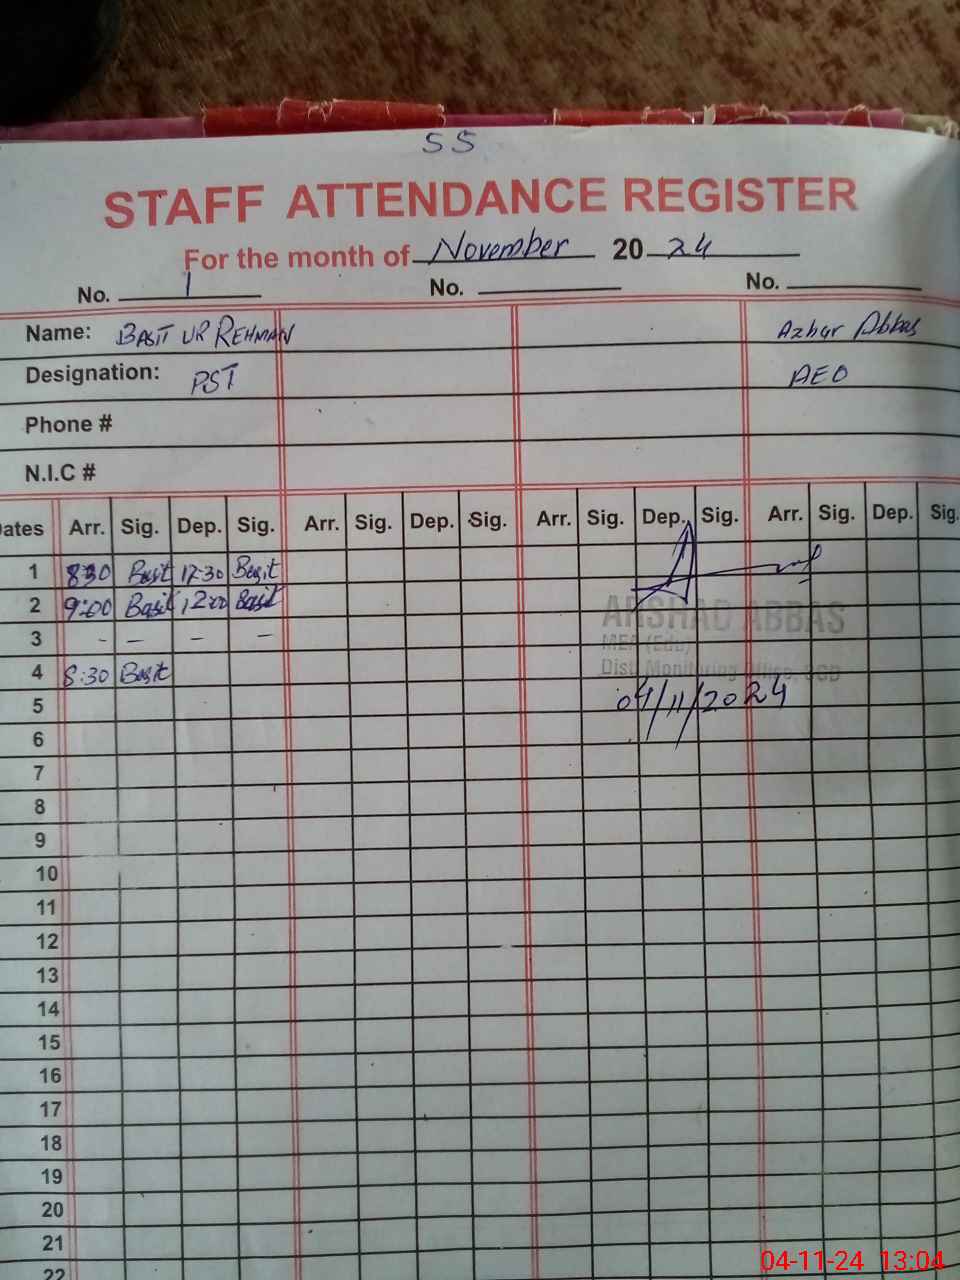 SS
STAFF ATTENDANCE REGISTER
For the month of November 2024
No. 1 No. No.
Name: BASIT UR REHMAN Azhar Abbas
Designation: PST AEO
Phone #
N.I.C #
Dates Arr. Sig. Dep. Sig. Arr. Sig. Dep. Sig. Arr. Sig. Dep. Sig. Arr. Sig. Dep. Sig.
1 8:30 Basit 12:30 Basit
2 9:00 Basit 12:00 Basit
ARSHAD ABBAS
3 - - - -
MEA (Edu)
4 8:30 Basit
Distt Monitoring Office, SGD
5 04/11/2024
6
7
8
9
10
11
12
13
14
15
16
17
18
19
20
21
22
04-11-24 13:04